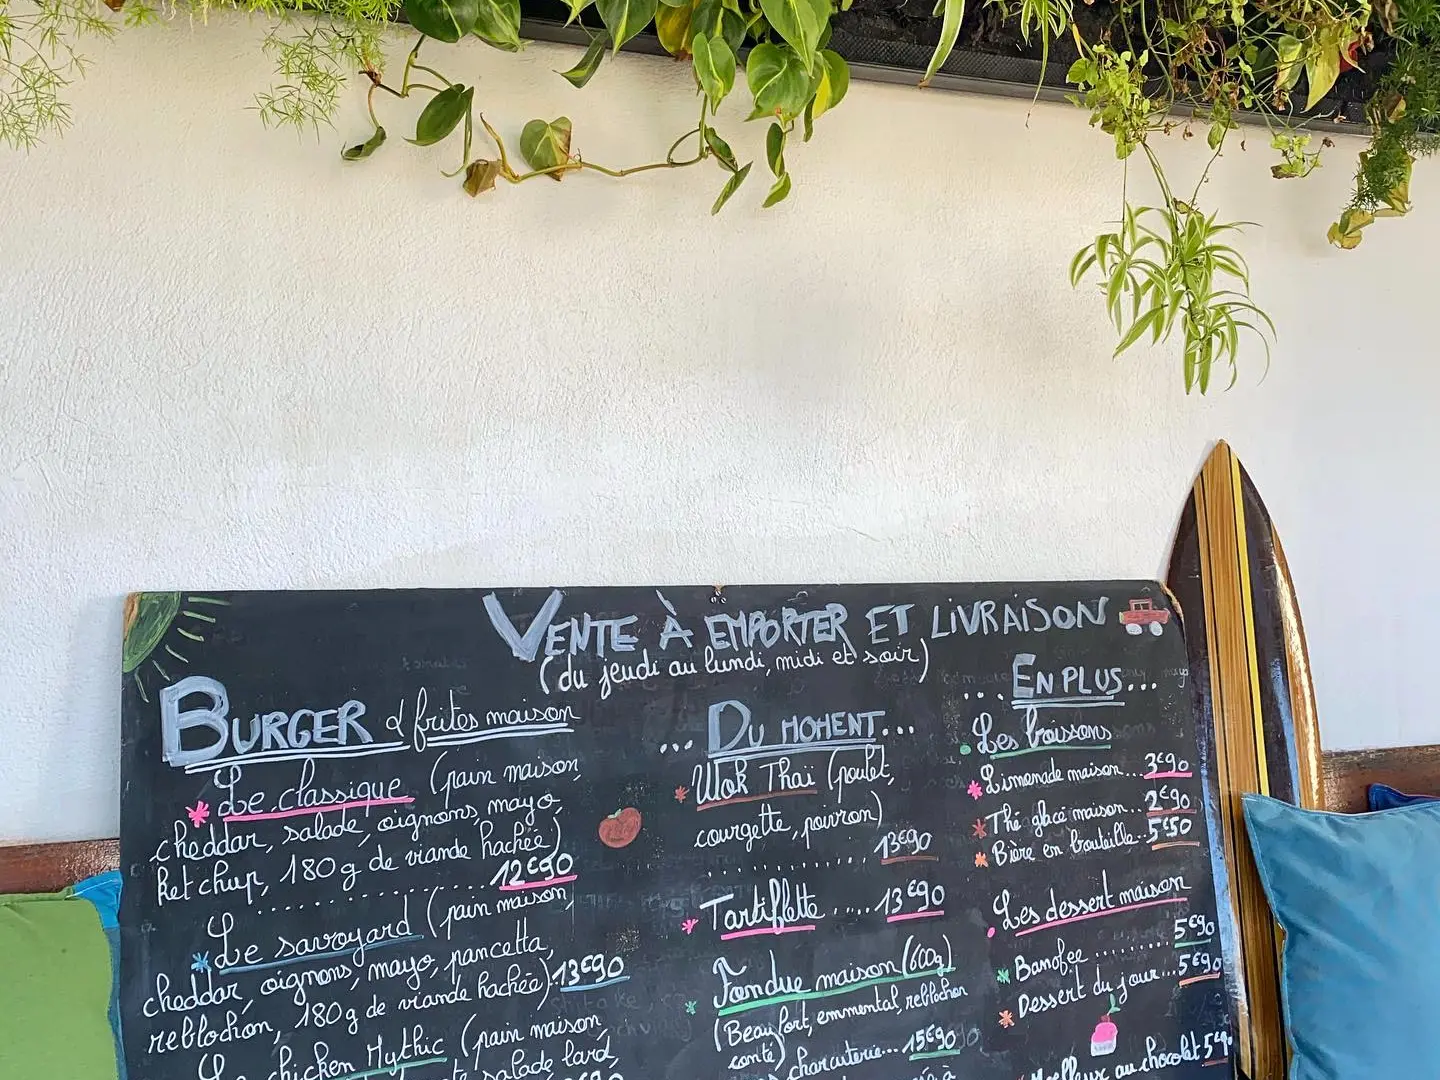 VENTE À EMPORTER ET LIVRAISON
(du jeudi au lundi, midi et soir)
BURGER & frites maison
* Le classique (pain maison,
cheddar, salade, oignons, mayo,
ketchup, 180g de viande hachée)
.................. 12€90
* Le savoyard (pain maison,
cheddar, oignons, mayo, pancetta,
reblochon, 180g de viande hachée).13€90
chicken Mythic (pain maison
salade lard,
... DU MOMENT...
* Wok Thaï (poulet,
courgette, poivron)
............ 13€90
* Tartiflette ..... 13€90
* Fondue maison (600g)
(Beaufort, emmental, reblochon
comté)
charcuterie... 15€90
... EN PLUS...
Les boissons
* Limonade maison... 3€90
* Thé glacé maison... 2€90
* Bière en bouteille.. 5€50
Les dessert maison
* Banofee ........ 5€90
* Dessert du jour... 5€90
Moelleux au chocolat 5€90